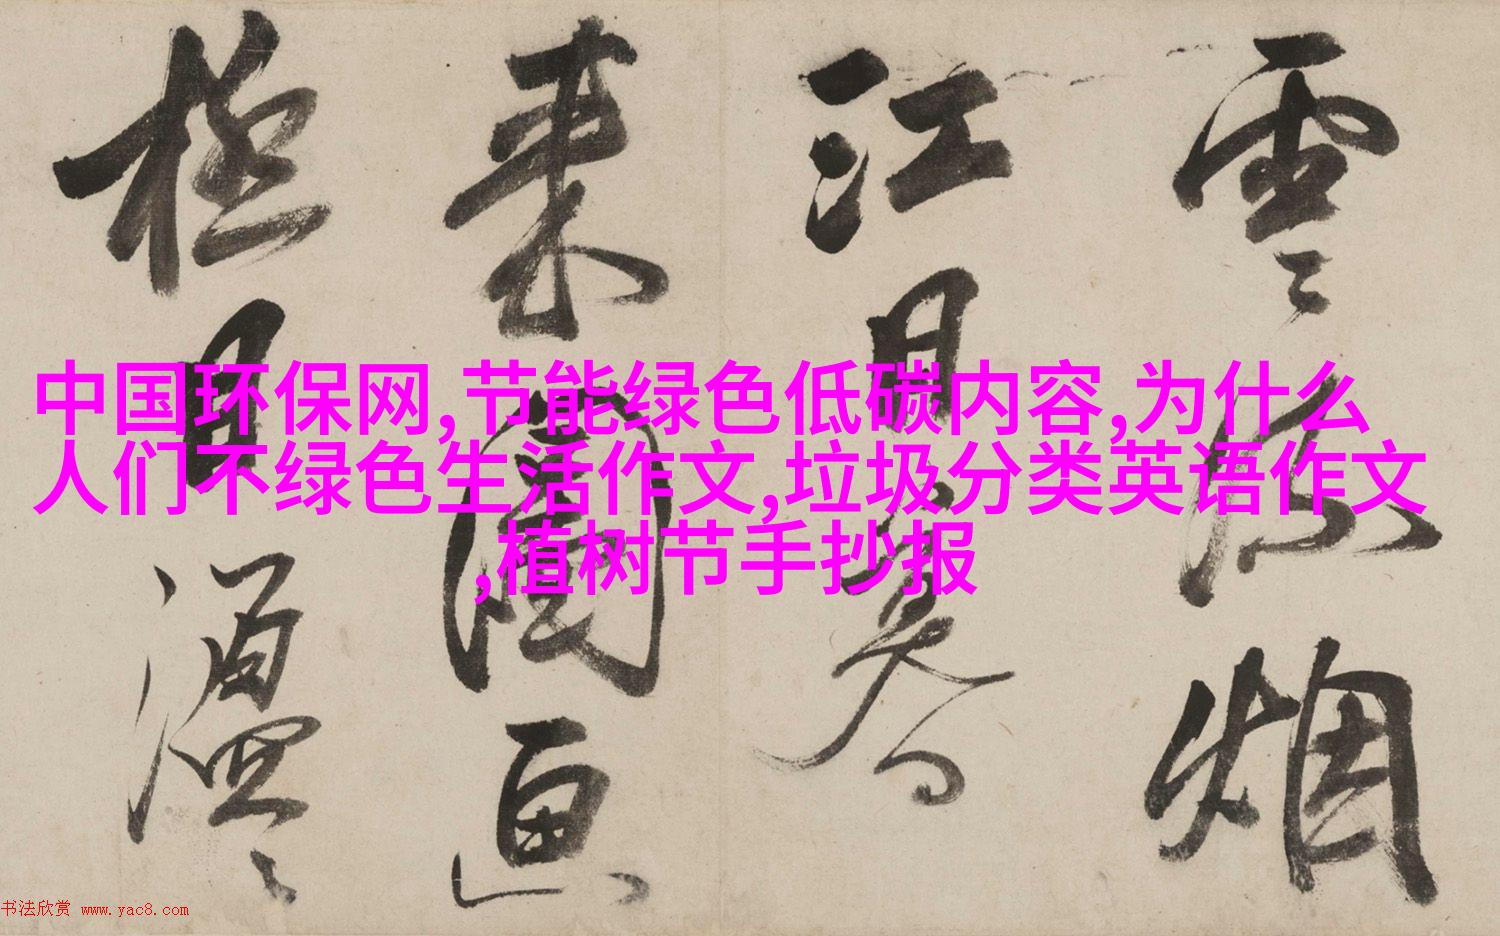 中国环保网,节能绿色低碳内容,为什么
人们不绿色生活作文,垃圾分类英语作文
,植树节手抄报
雲烟
江月
来画
極目
书法欣赏 www.yac8.com